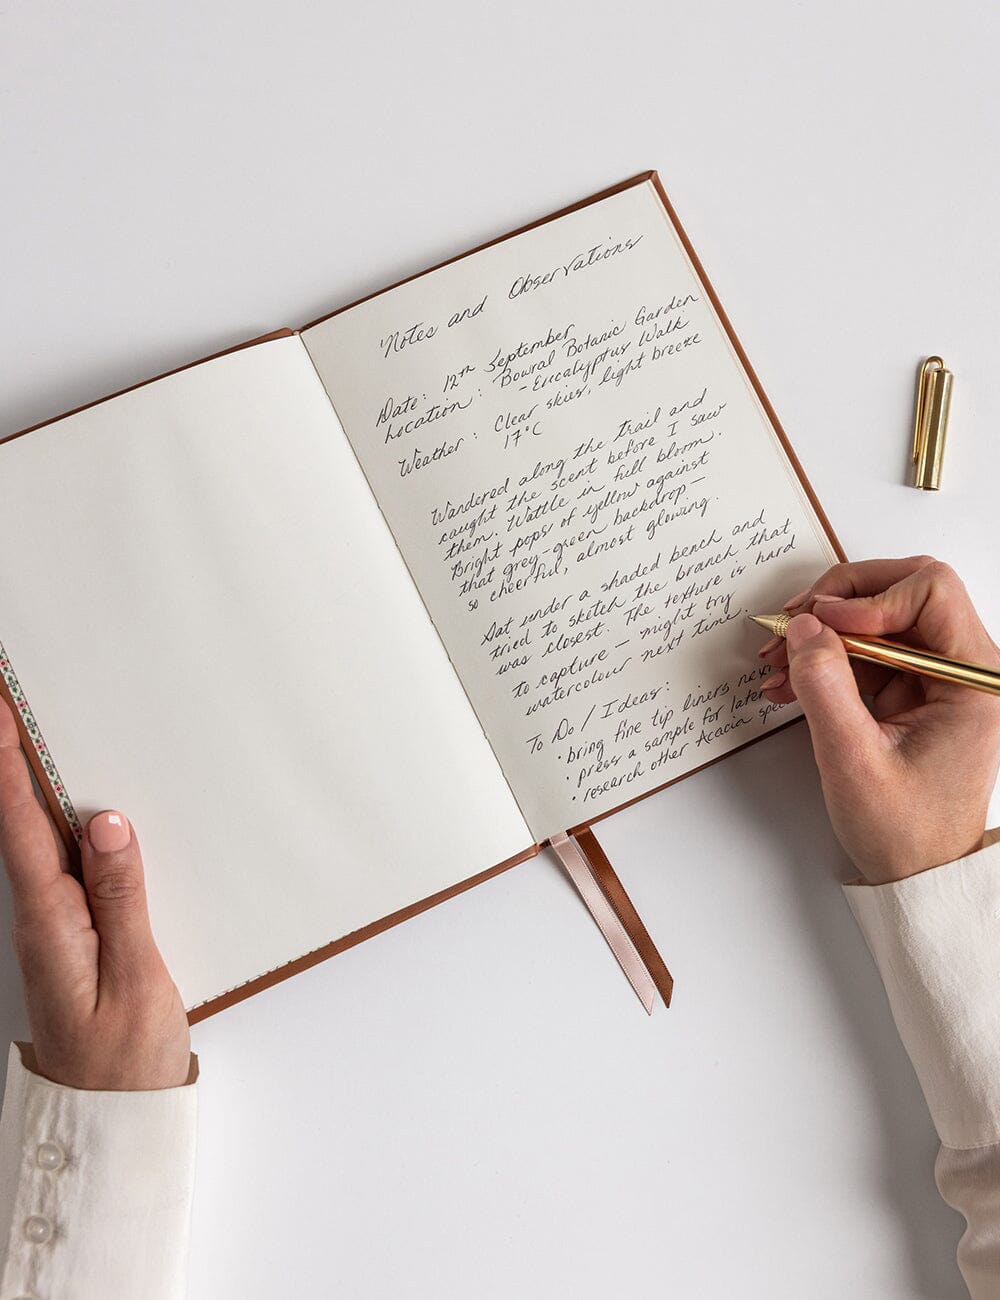 Notes and Observations
Date: 12th September
Location: Bowral Botanic Garden
- Eucalyptus Walk
Weather: Clear skies, light breeze
17°C
Wandered along the trail and
caught the scent before I saw
them. Wattle in full bloom.
Bright pops of yellow against
that grey-green backdrop—
so cheerful, almost glowing.
Sat under a shaded bench and
tried to sketch the branch that
was closest. The texture is hard
to capture — might try
watercolour next time.
To Do / Ideas:
• bring fine tip liners next
• press a sample for later
• research other Acacia